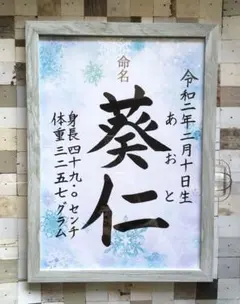 令和二年二月十日生
あおと
命名
葵仁
身長四十九・〇センチ
体重三二五七グラム